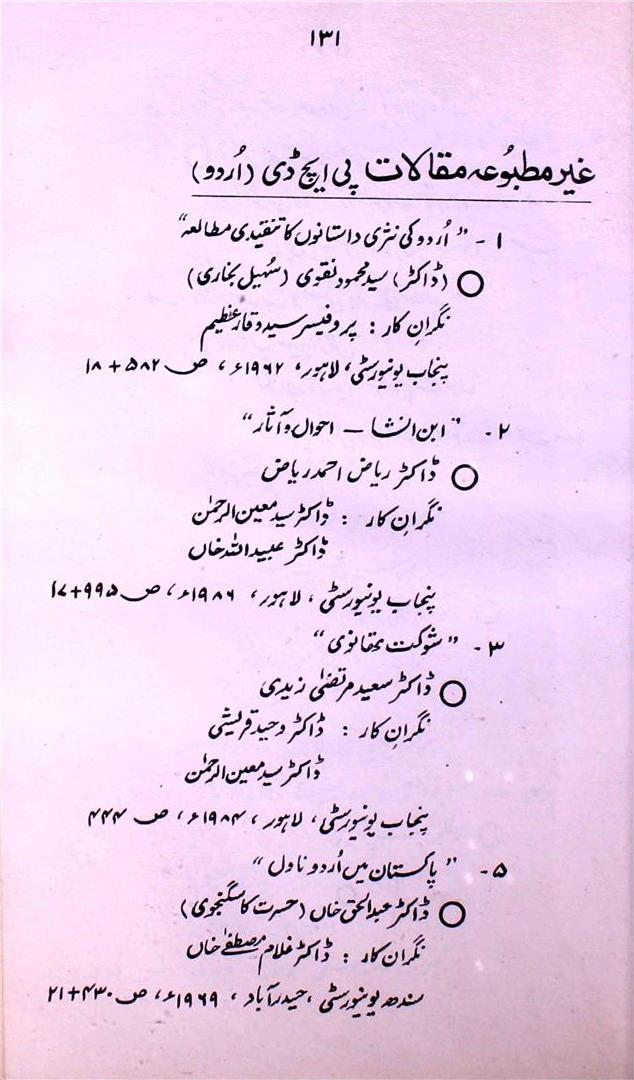 ۱۳۱
غیر مطبُوعہ مقالات پی ایچ ڈی (اُردو)
۱ - "اُردو کی نثری داستانوں کا تنقیدی مطالعہ"
○ (ڈاکٹر) سید محمود نقوی (سُہیل بخاری)
نگرانِ کار : پروفیسر سید وقار عظیم
پنجاب یونیورسٹی، لاہور، ۱۹۶۲ء، ص ۵۸۲ + ۱۸
۲ - "ابن انشا – احوال و آثار"
○ ڈاکٹر ریاض احمد ریاض
نگرانِ کار : ڈاکٹر سید معین الرحمٰن
ڈاکٹر عبید اللہ خاں
پنجاب یونیورسٹی، لاہور، ۱۹۸۶ء، ص ۹۹۵+۱۷
۳ - "شوکت تھانوی"
○ ڈاکٹر سعید مرتضیٰ زیدی
نگرانِ کار : ڈاکٹر وحید قریشی
ڈاکٹر سید معین الرحمٰن
پنجاب یونیورسٹی، لاہور، ۱۹۸۴ء، ص ۴۴۴
۵ - "پاکستان میں اُردو ناول"
○ ڈاکٹر عبدالحق خاں (حسرت کاسگنجوی)
نگران کار : ڈاکٹر غلام مصطفےٰ خاں
سندھ یونیورسٹی، حیدرآباد، ۱۹۶۹ء، ص ۴۳۰+۲۱